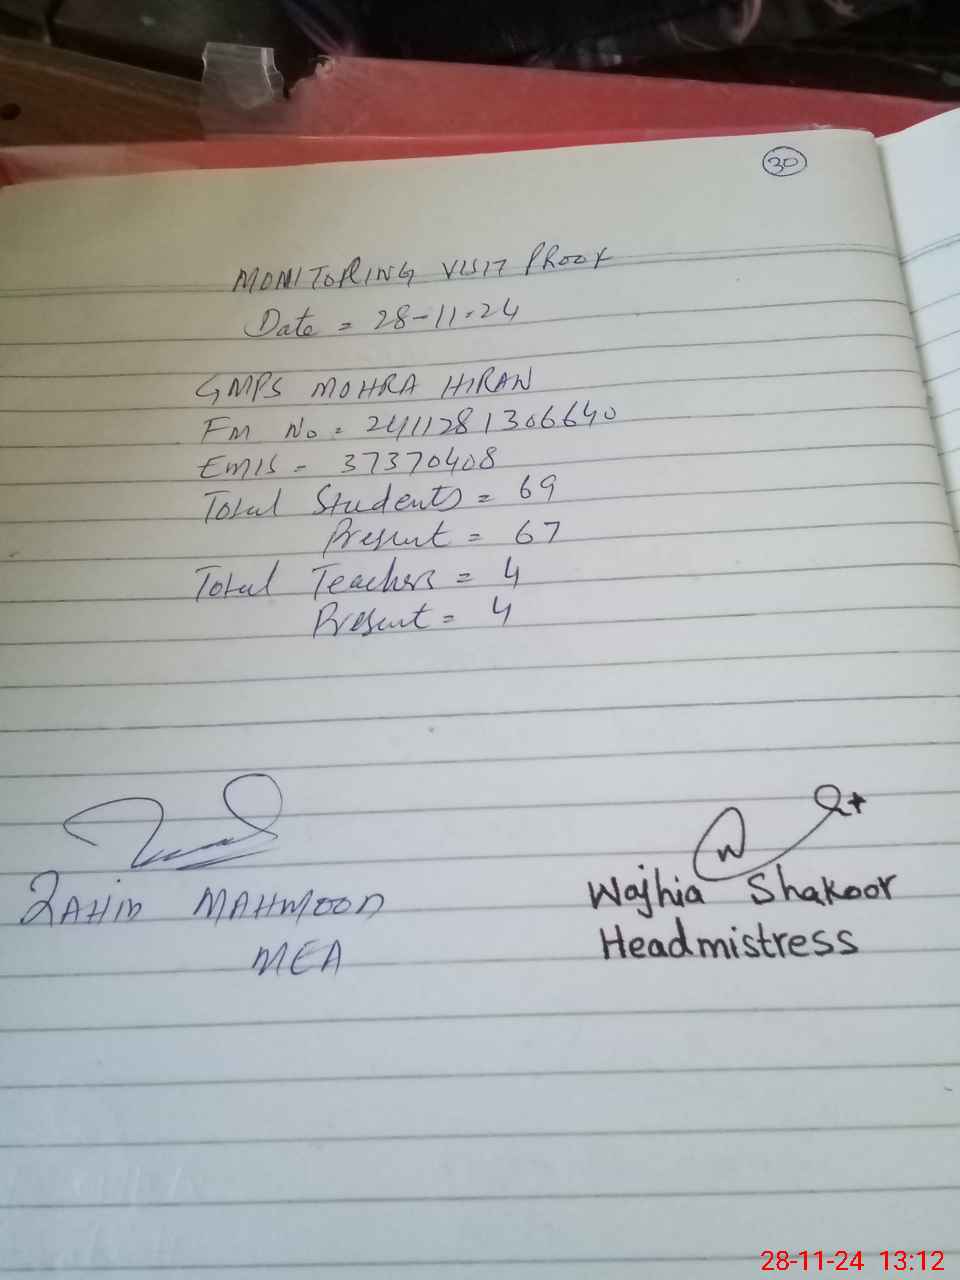 30
MONITORING VISIT PROOF
Date = 28-11-24
GMPS MOHRA HIRAN
Fm No = 2411281306640
EMIS = 37370408
Total Students = 69
Present = 67
Total Teachers = 4
Present = 4
ZAHID MAHMOOD
MEA
Wajhia Shakoor
Headmistress
28-11-24 13:12